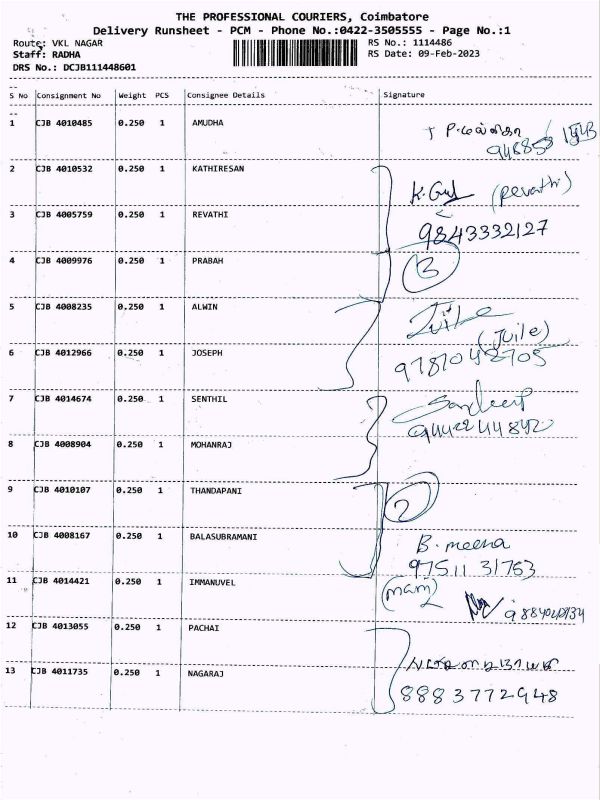 THE PROFESSIONAL COURIERS, Coimbatore
Delivery Runsheet - PCM - Phone No.:0422-3505555 - Page No.:1
Route: VKL NAGAR
RS No.: 1114486
Staff: RADHA
RS Date: 09-Feb-2023
DRS No.: DCJB111448601
S No Consignment No Weight PCS Consignee Details Signature
1 CJB 4010485 0.250 1 AMUDHA
2 CJB 4010532 0.250 1 KATHIRESAN
(Revathi)
3 CJB 4005759 0.250 1 REVATHI
9843332127
4 CJB 4009976 0.250 1 PRABAH
3
5 CJB 4008235 0.250 1 ALWIN
(Juile)
6 CJB 4012966 0.250 1 JOSEPH
9787042705
7 CJB 4014674 0.250 1 SENTHIL
Sandeep
9442244842
8 CJB 4008904 0.250 1 MOHANRAJ
9 CJB 4010107 0.250 1 THANDAPANI
2
10 CJB 4008167 0.250 1 BALASUBRAMANI
B. meena
97511 31763
11 CJB 4014421 0.250 1 IMMANUVEL
(mam)
12 CJB 4013055 0.250 1 PACHAI
13 CJB 4011735 0.250 1 NAGARAJ
88837 72948